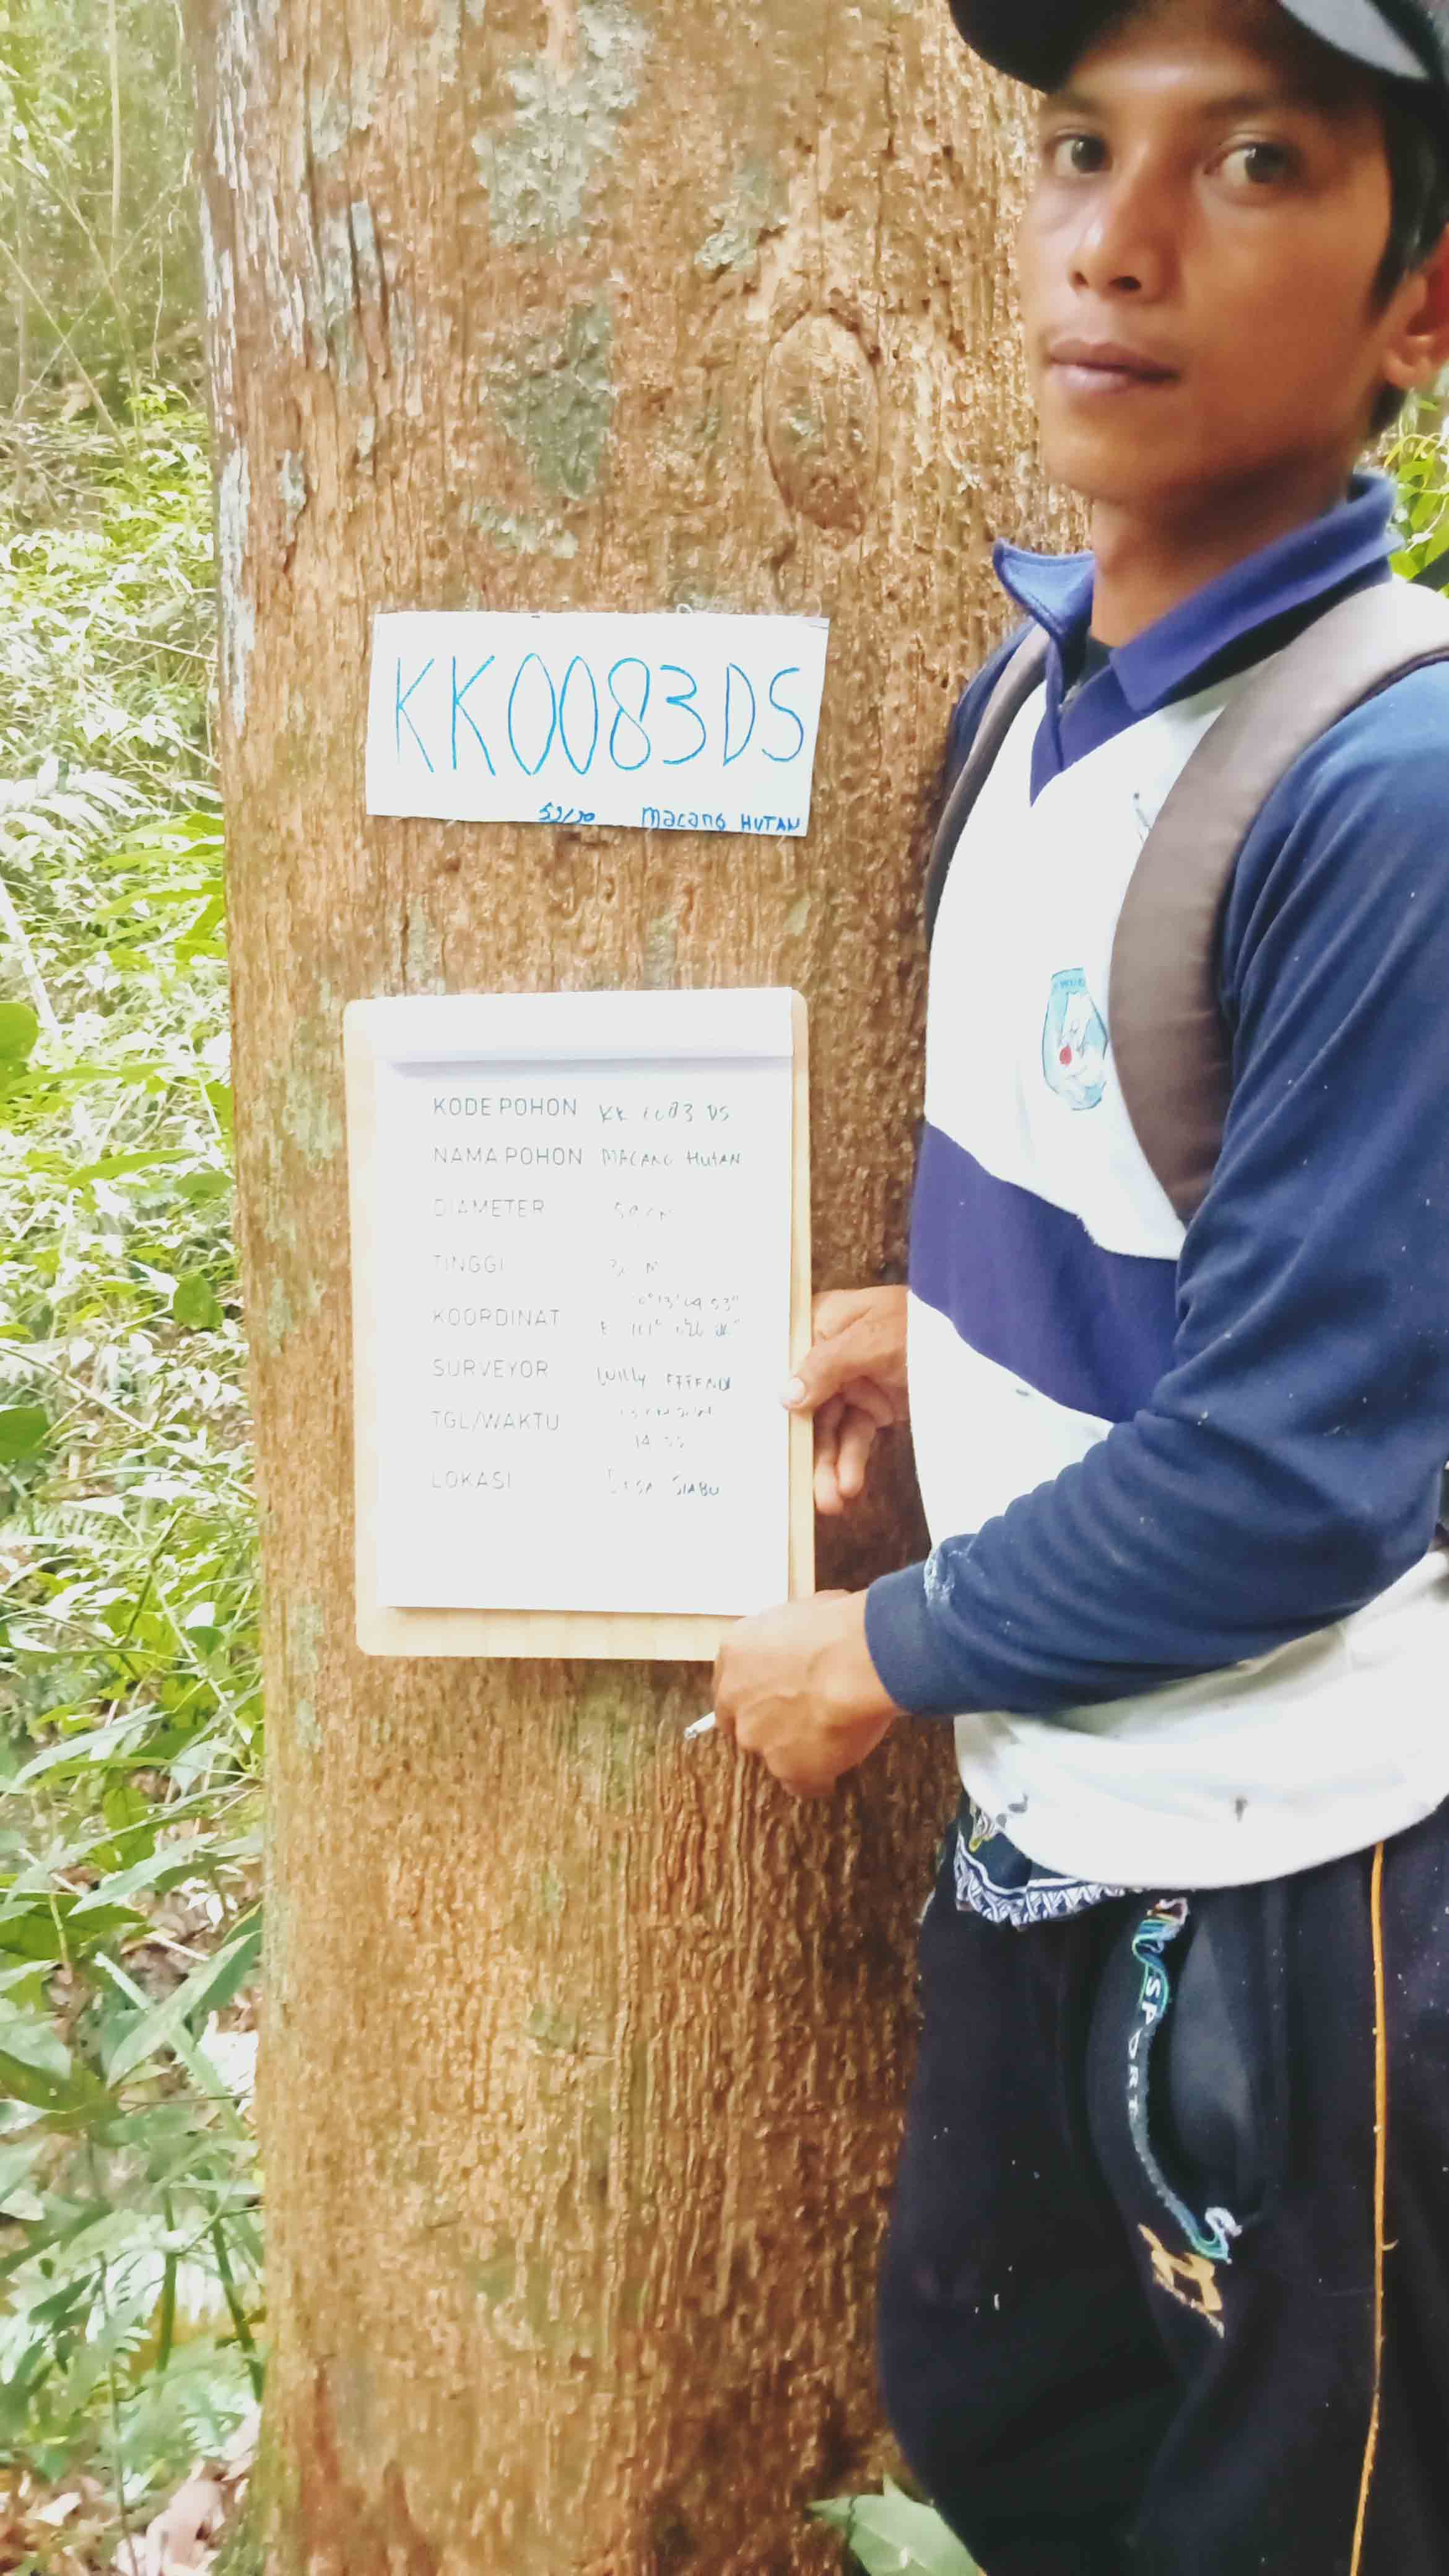 KK0083DS
Macang HUTAN
KODE POHON KK 0083 DS
NAMA POHON MACANG HUTAN
DIAMETER
TINGGI M
KOORDINAT
SURVEYOR Willy EFFENDI
TGL/WAKTU
LOKASI DESA SIABU
SPORT